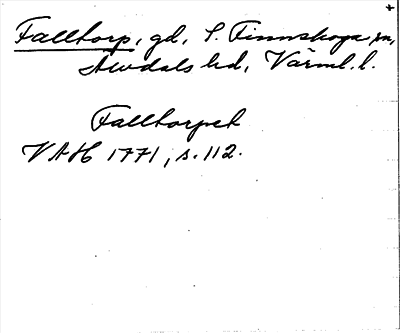 Falltorp, gd, S. Finnskoga sn,
Älvdals hd, Värml. l.
Falltorpet
VAH 1771, s. 112.